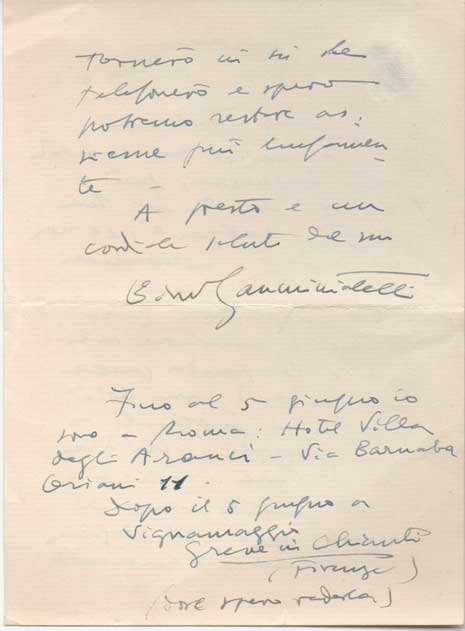 tornerò in su le
telefonerò e spero
potremo restare as,
sieme più lungamen-
te -
A presto e un
cordiale saluto dal suo
Bino Sanminiatelli
Fino al 5 giugno io
sono a Roma: Hotel Villa
degli Aranci - Via Barnaba
Oriani 11.
Dopo il 5 giugno a
Vignamaggio
Greve in Chianti
(Firenze)
(dove spero vederla)